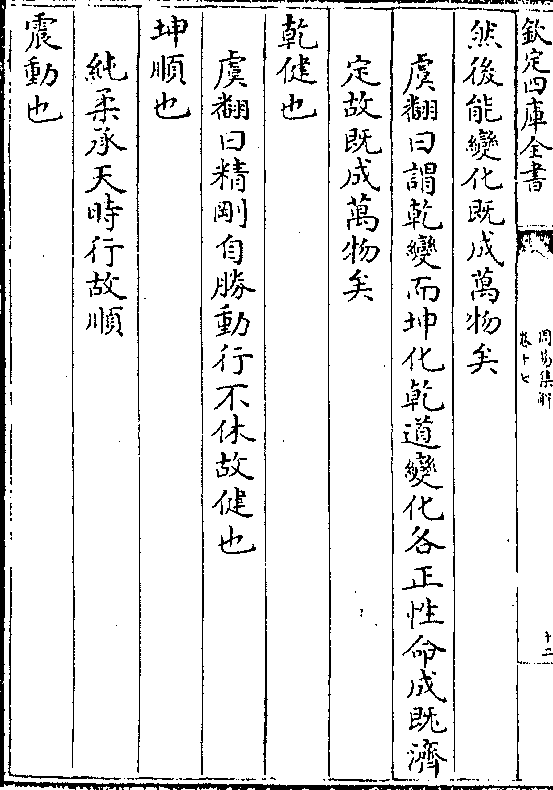 欽定四庫全書
周易集解
卷十七
十二
然後能變化既成萬物矣
虞翻曰謂乾變而坤化乾道變化各正性命成既濟
定故既成萬物矣
乾健也
虞翻曰精剛自勝動行不休故健也
坤順也
純柔承天時行故順
震動也